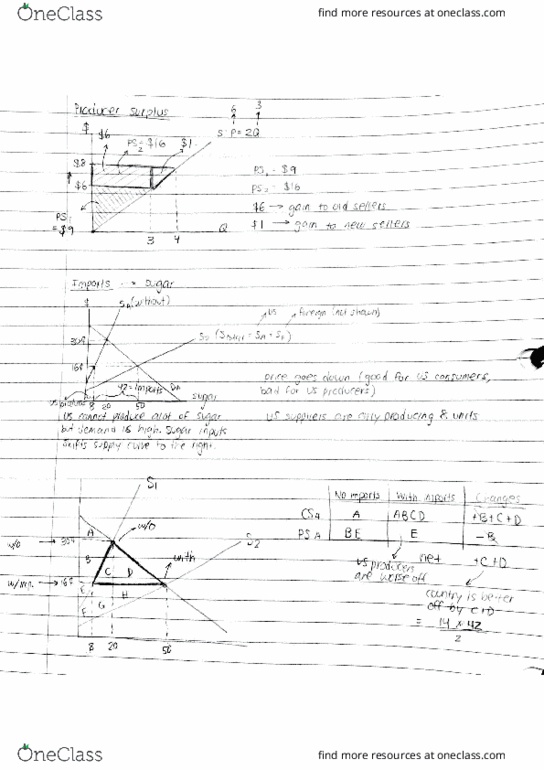 OneClass
find more resources at oneclass.com
Producer surplus
6 3
$ $6 PS2 = $16 $1 S: P=2Q
$8
$6
PS1 = $9
PS1 = $9
PS2 = $16
$6 → gain to old sellers
$1 → gain to new sellers
3 4 Q
Imports → Sugar
$ SA (without)
US foreign (not shown)
30¢
16¢
42 = imports DA
8 20 50 sugar
price goes down (good for US consumers,
bad for US producers)
US cannot produce alot of sugar
but demand is high. Sugar inputs
shifts supply curve to the right.
US suppliers are only producing 8 units
S1
w/o
A
w/o → 30¢
B
with
S2
C D
w/imp. → 16¢
E H
F G
8 20 50
No imports With imports Changes
CSA A ABCD +B+C+D
PSA BE E -B
US producers are worse off
net +C+D
country is better
off by C+D
= 14 × 42
2
OneClass
find more resources at oneclass.com